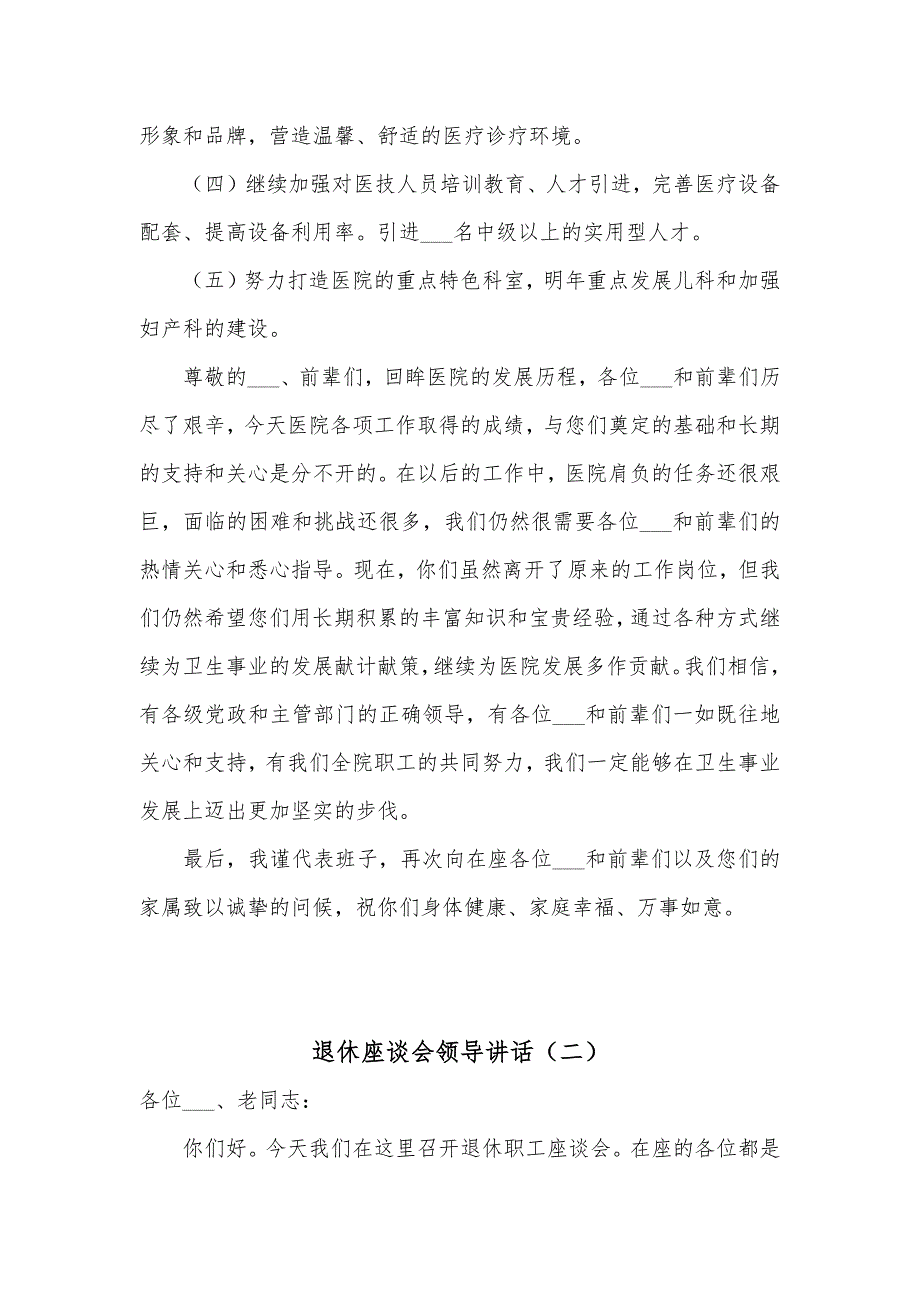 形象和品牌，营造温馨、舒适的医疗诊疗环境。
（四）继续加强对医技人员培训教育、人才引进，完善医疗设备
配套、提高设备利用率。引进___名中级以上的实用型人才。
（五）努力打造医院的重点特色科室，明年重点发展儿科和加强
妇产科的建设。
尊敬的___、前辈们，回眸医院的发展历程，各位___和前辈们历
尽了艰辛，今天医院各项工作取得的成绩，与您们奠定的基础和长期
的支持和关心是分不开的。在以后的工作中，医院肩负的任务还很艰
巨，面临的困难和挑战还很多，我们仍然很需要各位___和前辈们的
热情关心和悉心指导。现在，你们虽然离开了原来的工作岗位，但我
们仍然希望您们用长期积累的丰富知识和宝贵经验，通过各种方式继
续为卫生事业的发展献计献策，继续为医院发展多作贡献。我们相信，
有各级党政和主管部门的正确领导，有各位___和前辈们一如既往地
关心和支持，有我们全院职工的共同努力，我们一定能够在卫生事业
发展上迈出更加坚实的步伐。
最后，我谨代表班子，再次向在座各位___和前辈们以及您们的
家属致以诚挚的问候，祝你们身体健康、家庭幸福、万事如意。
退休座谈会领导讲话（二）
各位___、老同志：
你们好。今天我们在这里召开退休职工座谈会。在座的各位都是